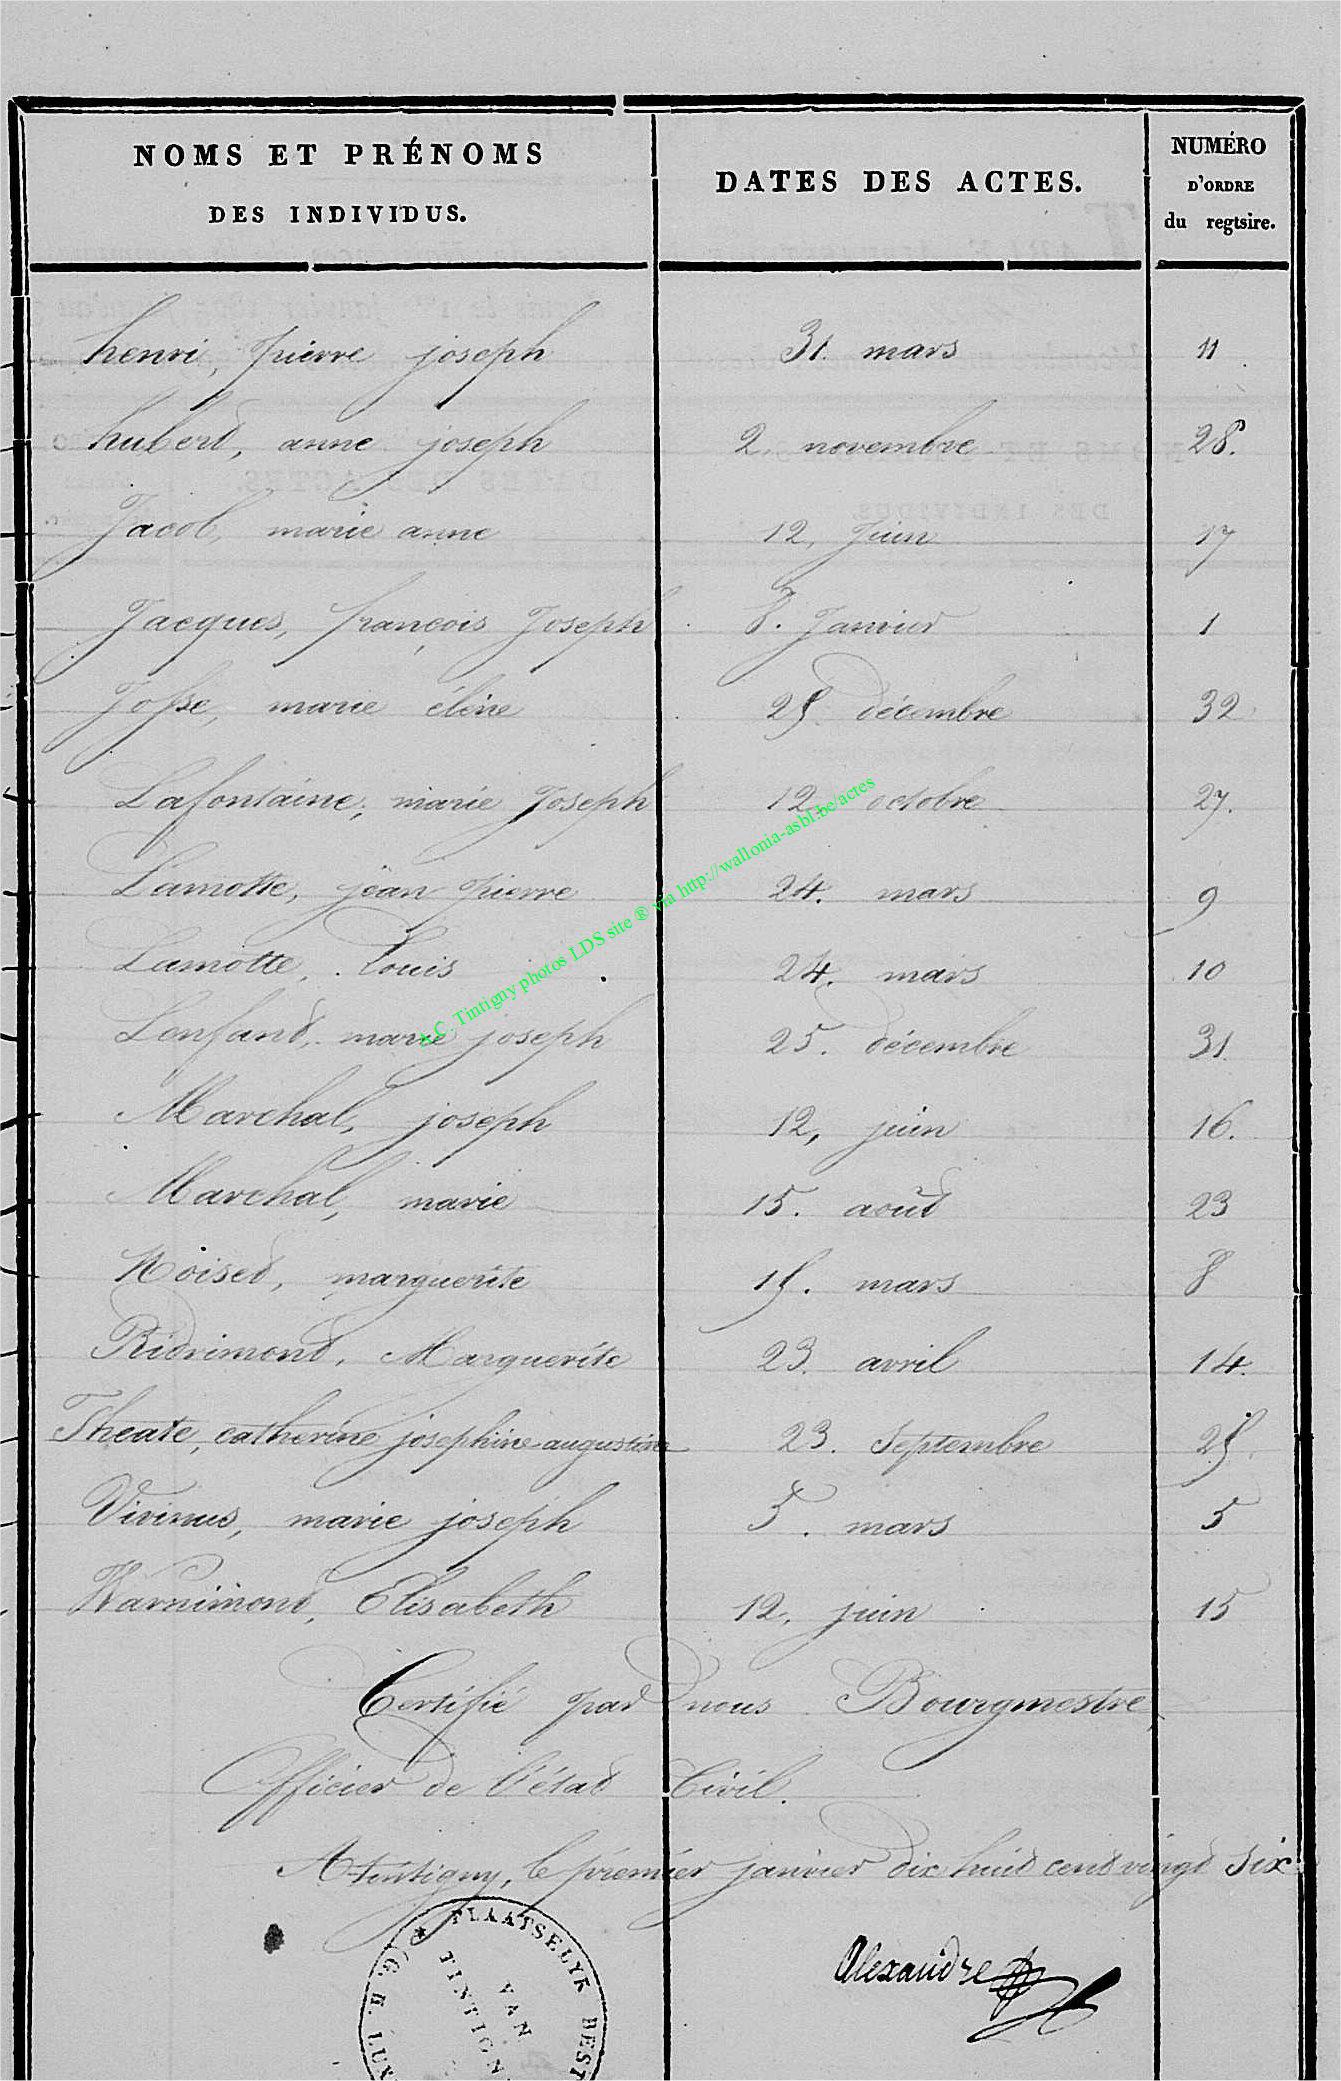 NOMS ET PRÉNOMS
DES INDIVIDUS.
DATES DES ACTES.
NUMÉRO
D'ORDRE
du regtsire.
henri, pierre joseph 31. mars 11
hubert, anne joseph 2. novembre 28.
Jacob, marie anne 12, Juin 17
Jacques, françois Joseph 8. Janvier 1
Josse, marie élène 25. décembre 32
Lafontaine, marie Joseph 12 octobre 27.
Lamotte, jean pierre 24. mars 9
Lamotte, Louis 24. mars 10
Lenfant, marie joseph 25. décembre 31
Marchal, joseph 12, juin 16.
Marchal, marie 15. août 23
Noiset, marguerite 15. mars 8
Ridrimont, Marguerite 23. avril 14.
Theate, catherine josephine augustine 23. Septembre 25.
Virinus, marie joseph 5. mars 5
Warnimont, Elisabeth 12, juin 15
Certifié par nous Bourgmestre,
Officier de l'état Civil.
A tintigny, le premier janvier dix huit cent vingt six
Alexandre
PLAATSELYK BEST
VAN
TINTIGN
G. H. LUX
A.C. Tintigny photos LDS site ® via http://wallonia-asbl.be/actes